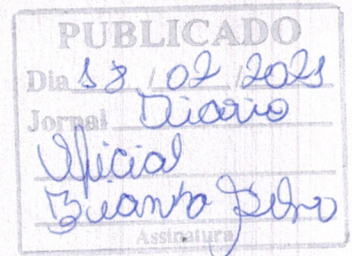 PUBLICADO
Dia 18 / 02 / 2021
Jornal Diario
Oficial
Assinatura